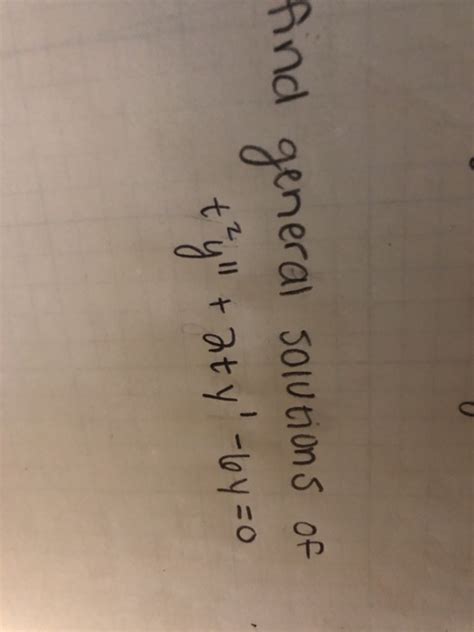 find general solutions of
t²y" + 2ty' - 6y = 0